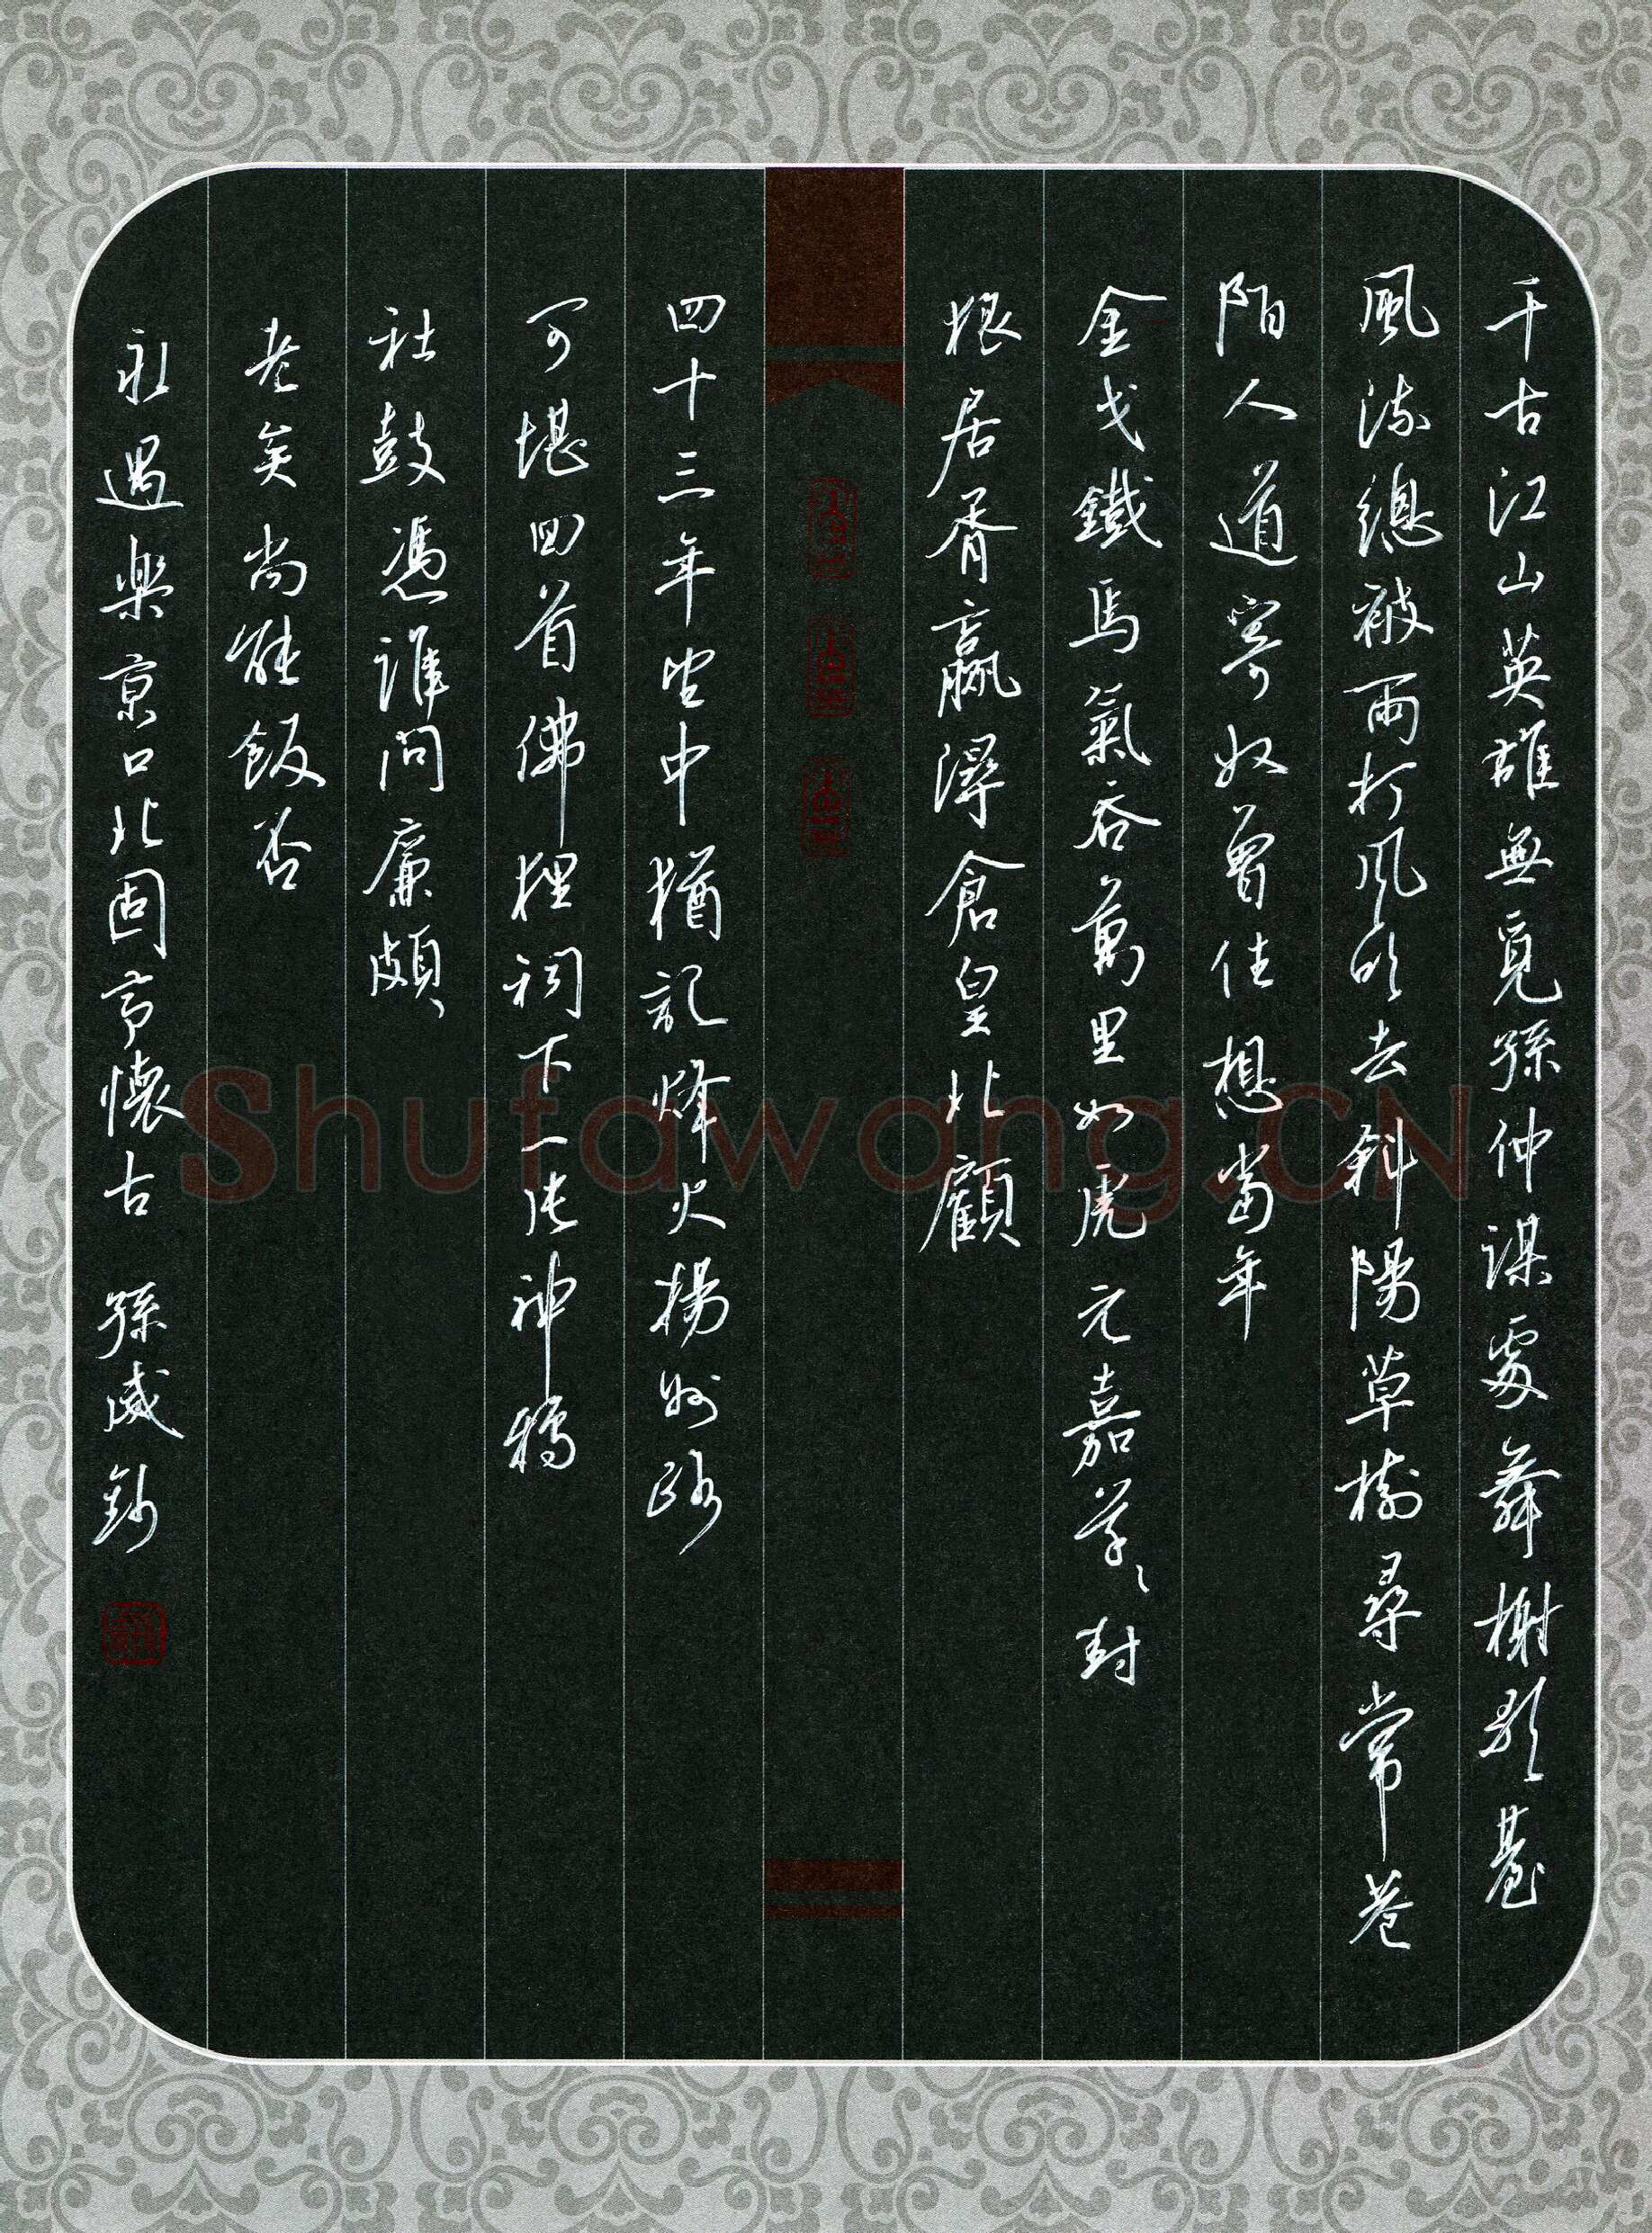 千古江山英雄無覓孫仲謀處舞榭歌臺
風流總被雨打風吹去斜陽草樹尋常巷
陌人道寄奴曾住想當年
金戈鐵馬氣吞萬里如虎元嘉草〻封
狼居胥贏得倉皇北顧
四十三年望中猶記烽火揚州路
可堪回首佛狸祠下一片神鴉
社鼓憑誰問廉頗
老矣尚能飯否
永遇樂京口北固亭懷古 孫威鈔
Shufawang.CN